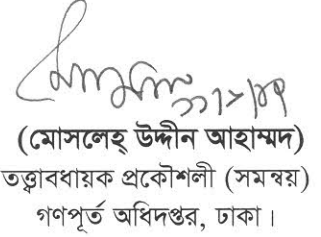 (মোসলেহ্ উদ্দীন আহাম্মদ)
তত্ত্বাবধায়ক প্রকৌশলী (সমন্বয়)
গণপূর্ত অধিদপ্তর, ঢাকা।